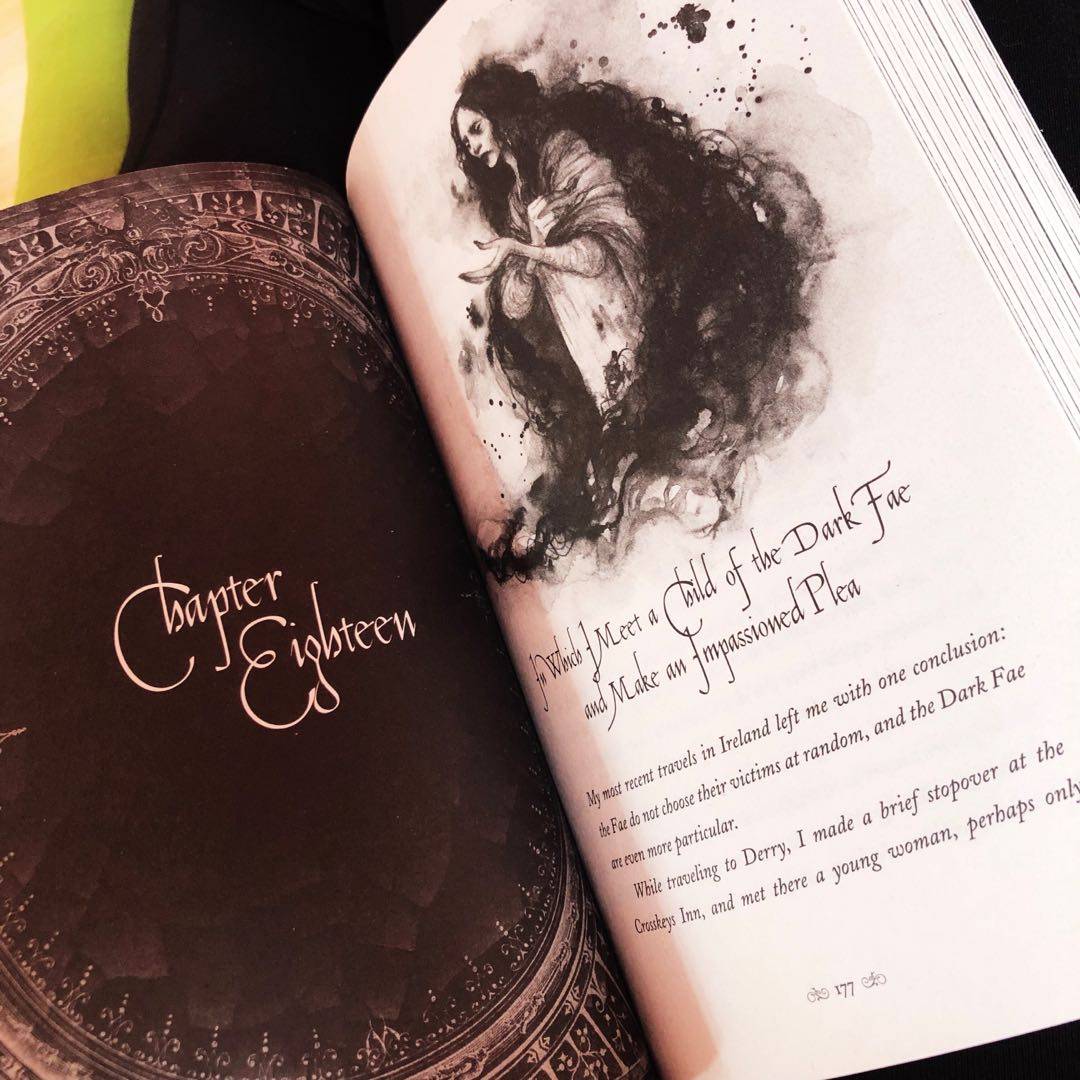 Chapter
Eighteen
In Which I Meet a Child of the Dark Fae
and Make an Impassioned Plea
My most recent travels in Ireland left me with one conclusion:
the Fae do not choose their victims at random, and the Dark Fae
are even more particular.
While traveling to Derry, I made a brief stopover at the
Crosskeys Inn, and met there a young woman, perhaps only
177